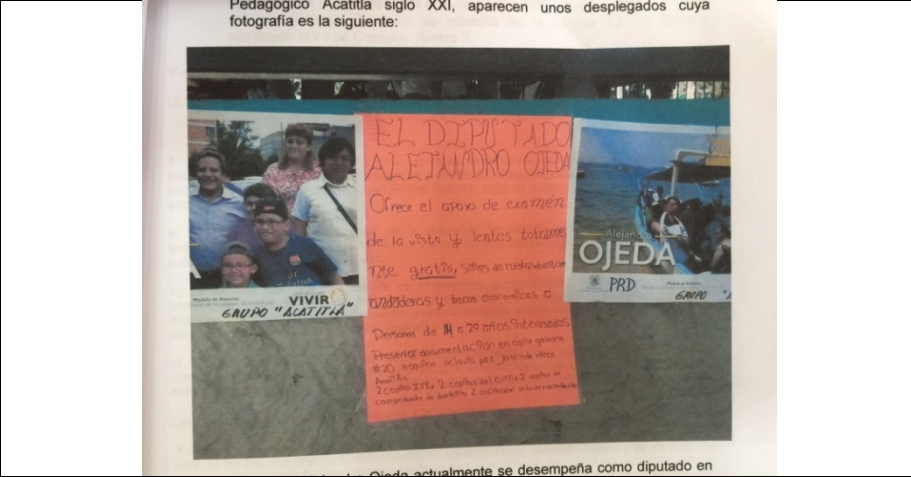 Pedagógico Acatitla siglo XXI, aparecen unos desplegados cuya
fotografía es la siguiente:
EL DIPUTADO
ALEJANDRO OJEDA
Ofrece el apoyo de examén
de la vista y lentes totalme
nte gratis, sillas de ruedas
andaderas y becas economicas a
Personas de 14 a 29 años interesados
Presentar documentación en calle
#20 esquina octavio paz
2 copias IFE, 2 copias del curp, 2 copias de
comprobante de domicilio 2 copias
VIVIR
GRUPO "ACATITLA"
Alejandro
OJEDA
PRD
GRUPO "A
Ojeda actualmente se desempeña como diputado en